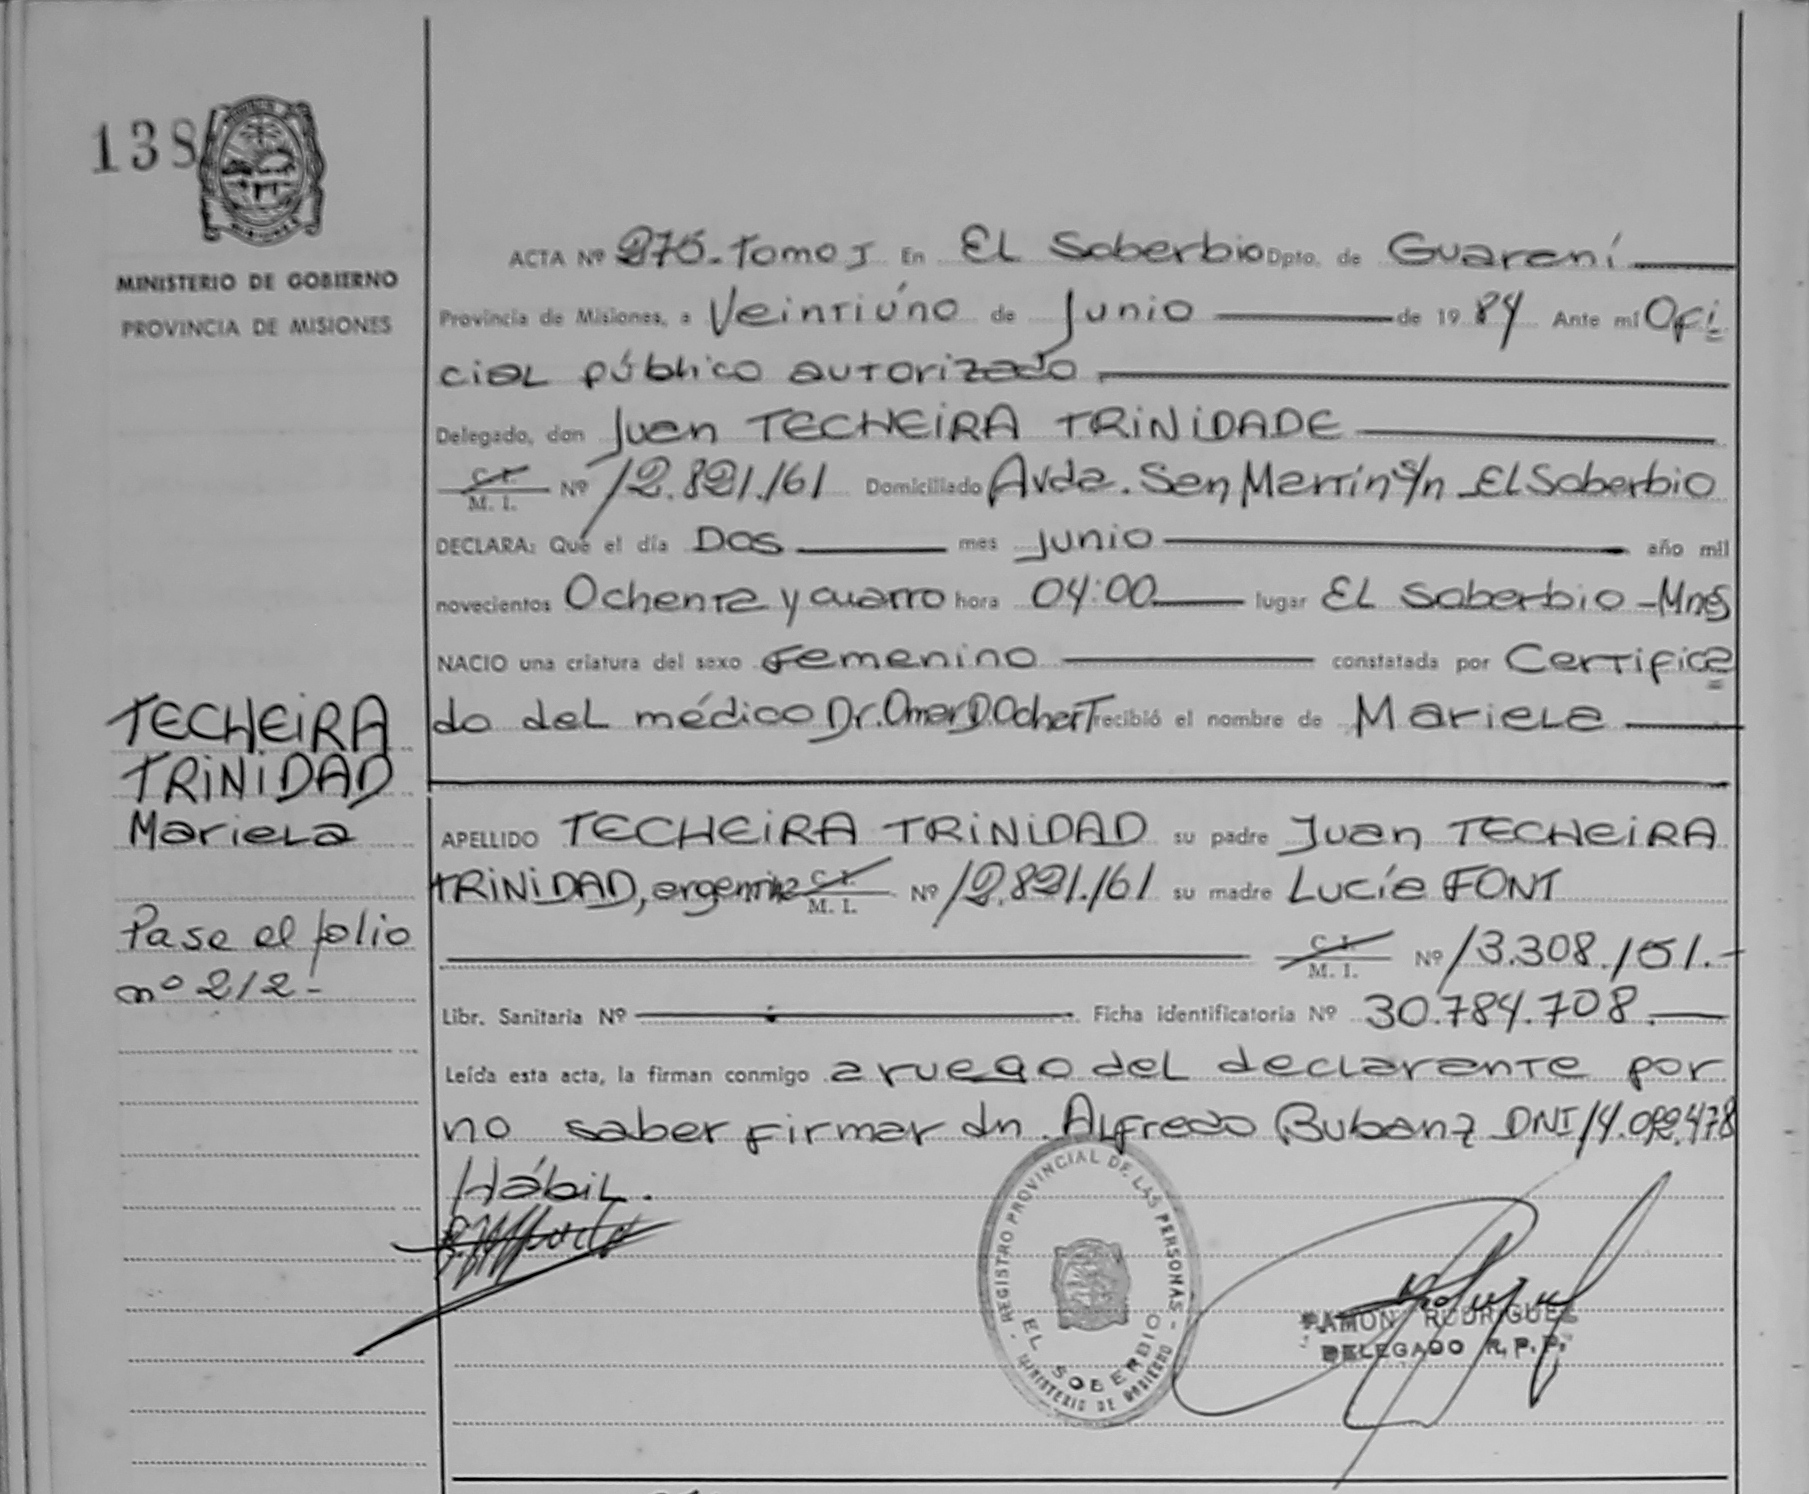 138
MINISTERIO DE GOBIERNO
PROVINCIA DE MISIONES
ACTA Nº 275. Tomo I En El Soberbio Dpto. de Guaraní
Provincia de Misiones, a Veintiúno de Junio de 1984 Ante mí Ofi
cial público autorizado
Delegado, don Juan TECHEIRA TRINIDADE
C. I. M. I. Nº 12.821.161 Domiciliado Avda. San Martín s/n El Soberbio
DECLARA: Que el día Dos mes junio año mil
novecientos Ochenta y cuatro hora 04:00 lugar El Soberbio - Mnes
NACIO una criatura del sexo femenino constatada por Certifica
do del médico Dr. Omar D. Ochert recibió el nombre de Mariela
APELLIDO TECHEIRA TRINIDAD su padre Juan TECHEIRA
TRINIDAD, argentino C. I. M. I. Nº 12.821.161 su madre Lucía FONT
C. I. M. I. Nº 13.308.151.-
Libr. Sanitaria Nº Ficha identificatoria Nº 30.784.708.
Leída esta acta, la firman conmigo a ruego del declarante por
no saber firmar dn Alfredo Bubanz DNI 14.092.478
Hábil.
TECHEIRA
TRINIDAD
Mariela
Pase al folio
nº 212-
- REGISTRO PROVINCIAL DE LAS PERSONAS -
EL SOBERBIO
MINISTERIO DE GOBIERNO
RAMON RODRIGUEZ
DELEGADO R. P. P.